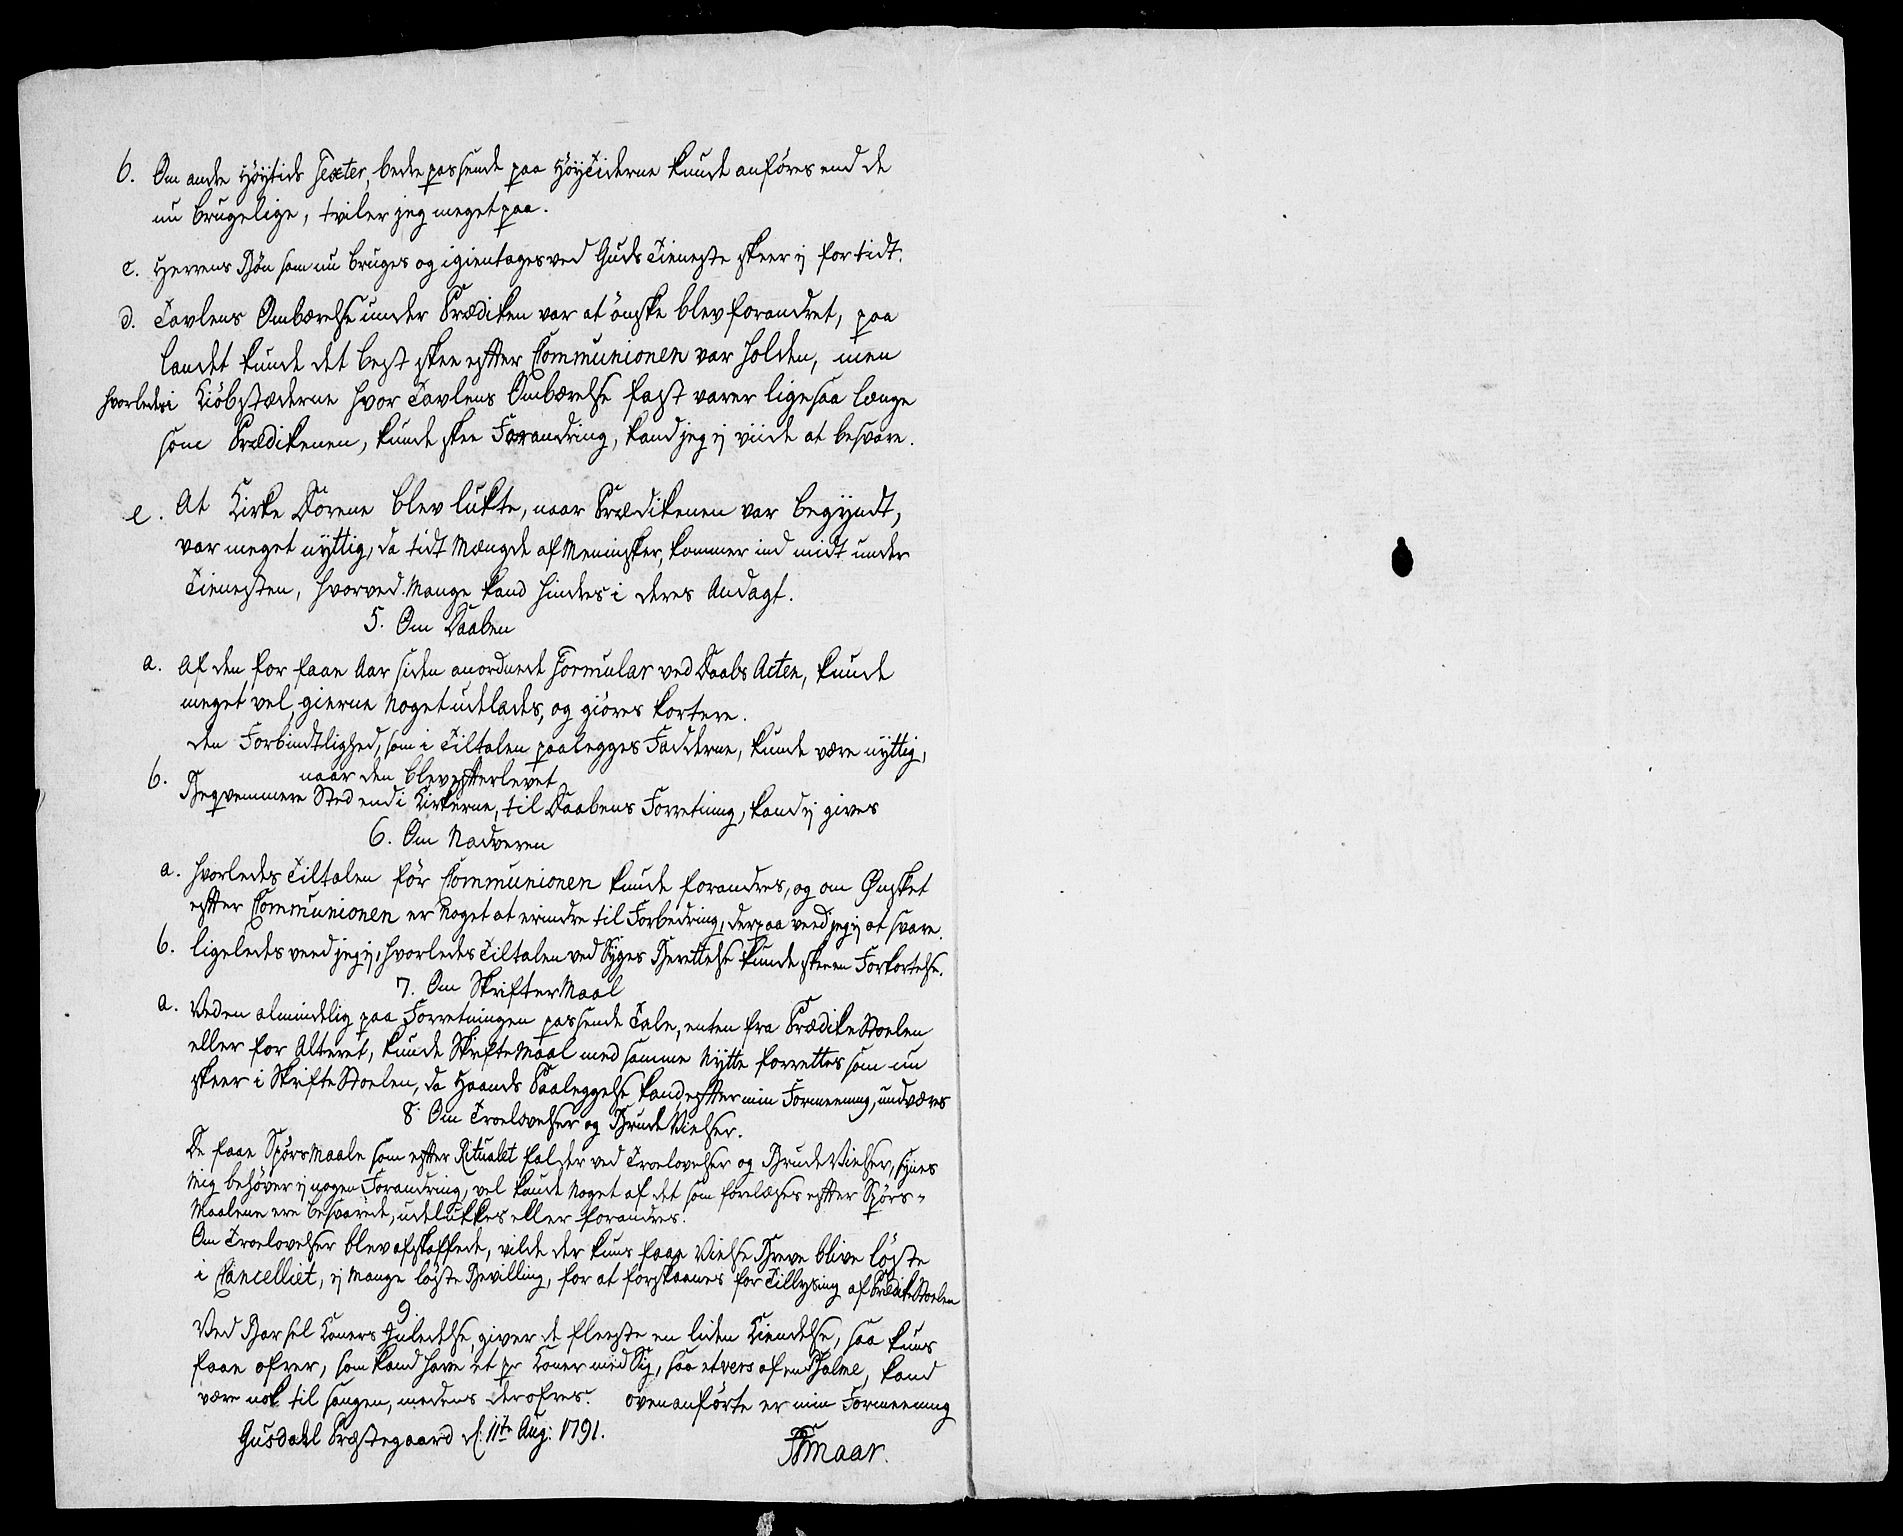 b. Om andre Höytids Texter, bedre passende paa Höytiderne kunde anföres end de
nu brugelige, tviler jeg meget paa.
c. Herrens Bön som nu bruges og igientages ved Guds Tieneste skeer ej for tidt.
d. Tavlens Ombærelse under Prædiken var at önske blev forandret, paa
landet kunde det best skee efter Communionen var holden, men
hvorledes i Kiöbstæderne hvor Tavlens Ombærelse fast varer ligesaa længe
som Prædikenen, kunde skee Forandring, kand jeg ej viide at besvare.
e. At Kirke Dörene blev lukte, naar Prædikenen var begyndt,
var meget nyttig, da tidt Mængde af Mennisker, kommer ind midt under
Tienesten, hvorved Mange kand hindres i deres Andagt.
5. Om Daaben
a. Af den for faae Aar siden anordnede Formular ved Daabs Acten, kunde
meget vel, gierne noget udelades, og giöres kortere.
den Forbindtlighed, som i Tiltalen paalegges Fadderne, kunde være nyttig,
naar den blev efterlevet
b. Beqvemmere Sted end i Kirkerne, til Daabens Forretning, kand ej gives
6. Om Nadveren
a. hvorledes Tiltalen för Communionen kunde forandres, og om Ønsket
efter Communionen er noget at erindre til Forbedring, derpaa veed jeg ej at svare.
b. ligeledes veed jeg ej, hvorledes Tiltalen ved Syges Berettelse kunde skee en Forkortelse.
7. Om Skrifter Maal
a. Ved en almindelig paa Forretningen passende Tale, enten fra Prædike Stoelen
eller for Alteret, kunde Skrifte Maal med samme Nytte forrettes som nu
skeer i Skrifte Stoelen, da Haands Paaleggelse kand efter min Formeening, undværes
8. Om Troelovelser og Brude Vielser.
De faae Spörs Maale som efter Ritualet falder ved Troelovelser og Brude Vielser, synes
Mig behöver ej nogen Forandring, vel kunde noget af det som forelæses efter Spörs-
Maalene ere besvarede, udelukkes eller forandres.
Om Troelovelser blev afskaffede, vilde der kuns faae Vielse Breve blive löste
i Cancelliet, ej mange löste Bevilling, for at forskaanes for Tillysing af Prædike Stoelen
9.
Ved Barsel Koners Inledelse, giver de fleeste en liden Kiendelse, saa kuns
faae ofrer, som kand have et pr Koner med Sig, saa et vers af en Psalme, kand
være nok til sangen, medens der ofres. ovenanförte er min Formeening
Gusdahl Præstegaard d. 11te Aug: 1791.
Smaar.